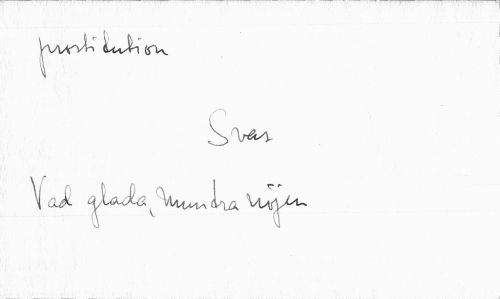 prostitution
Svar
Vad glada, muntra nöjen